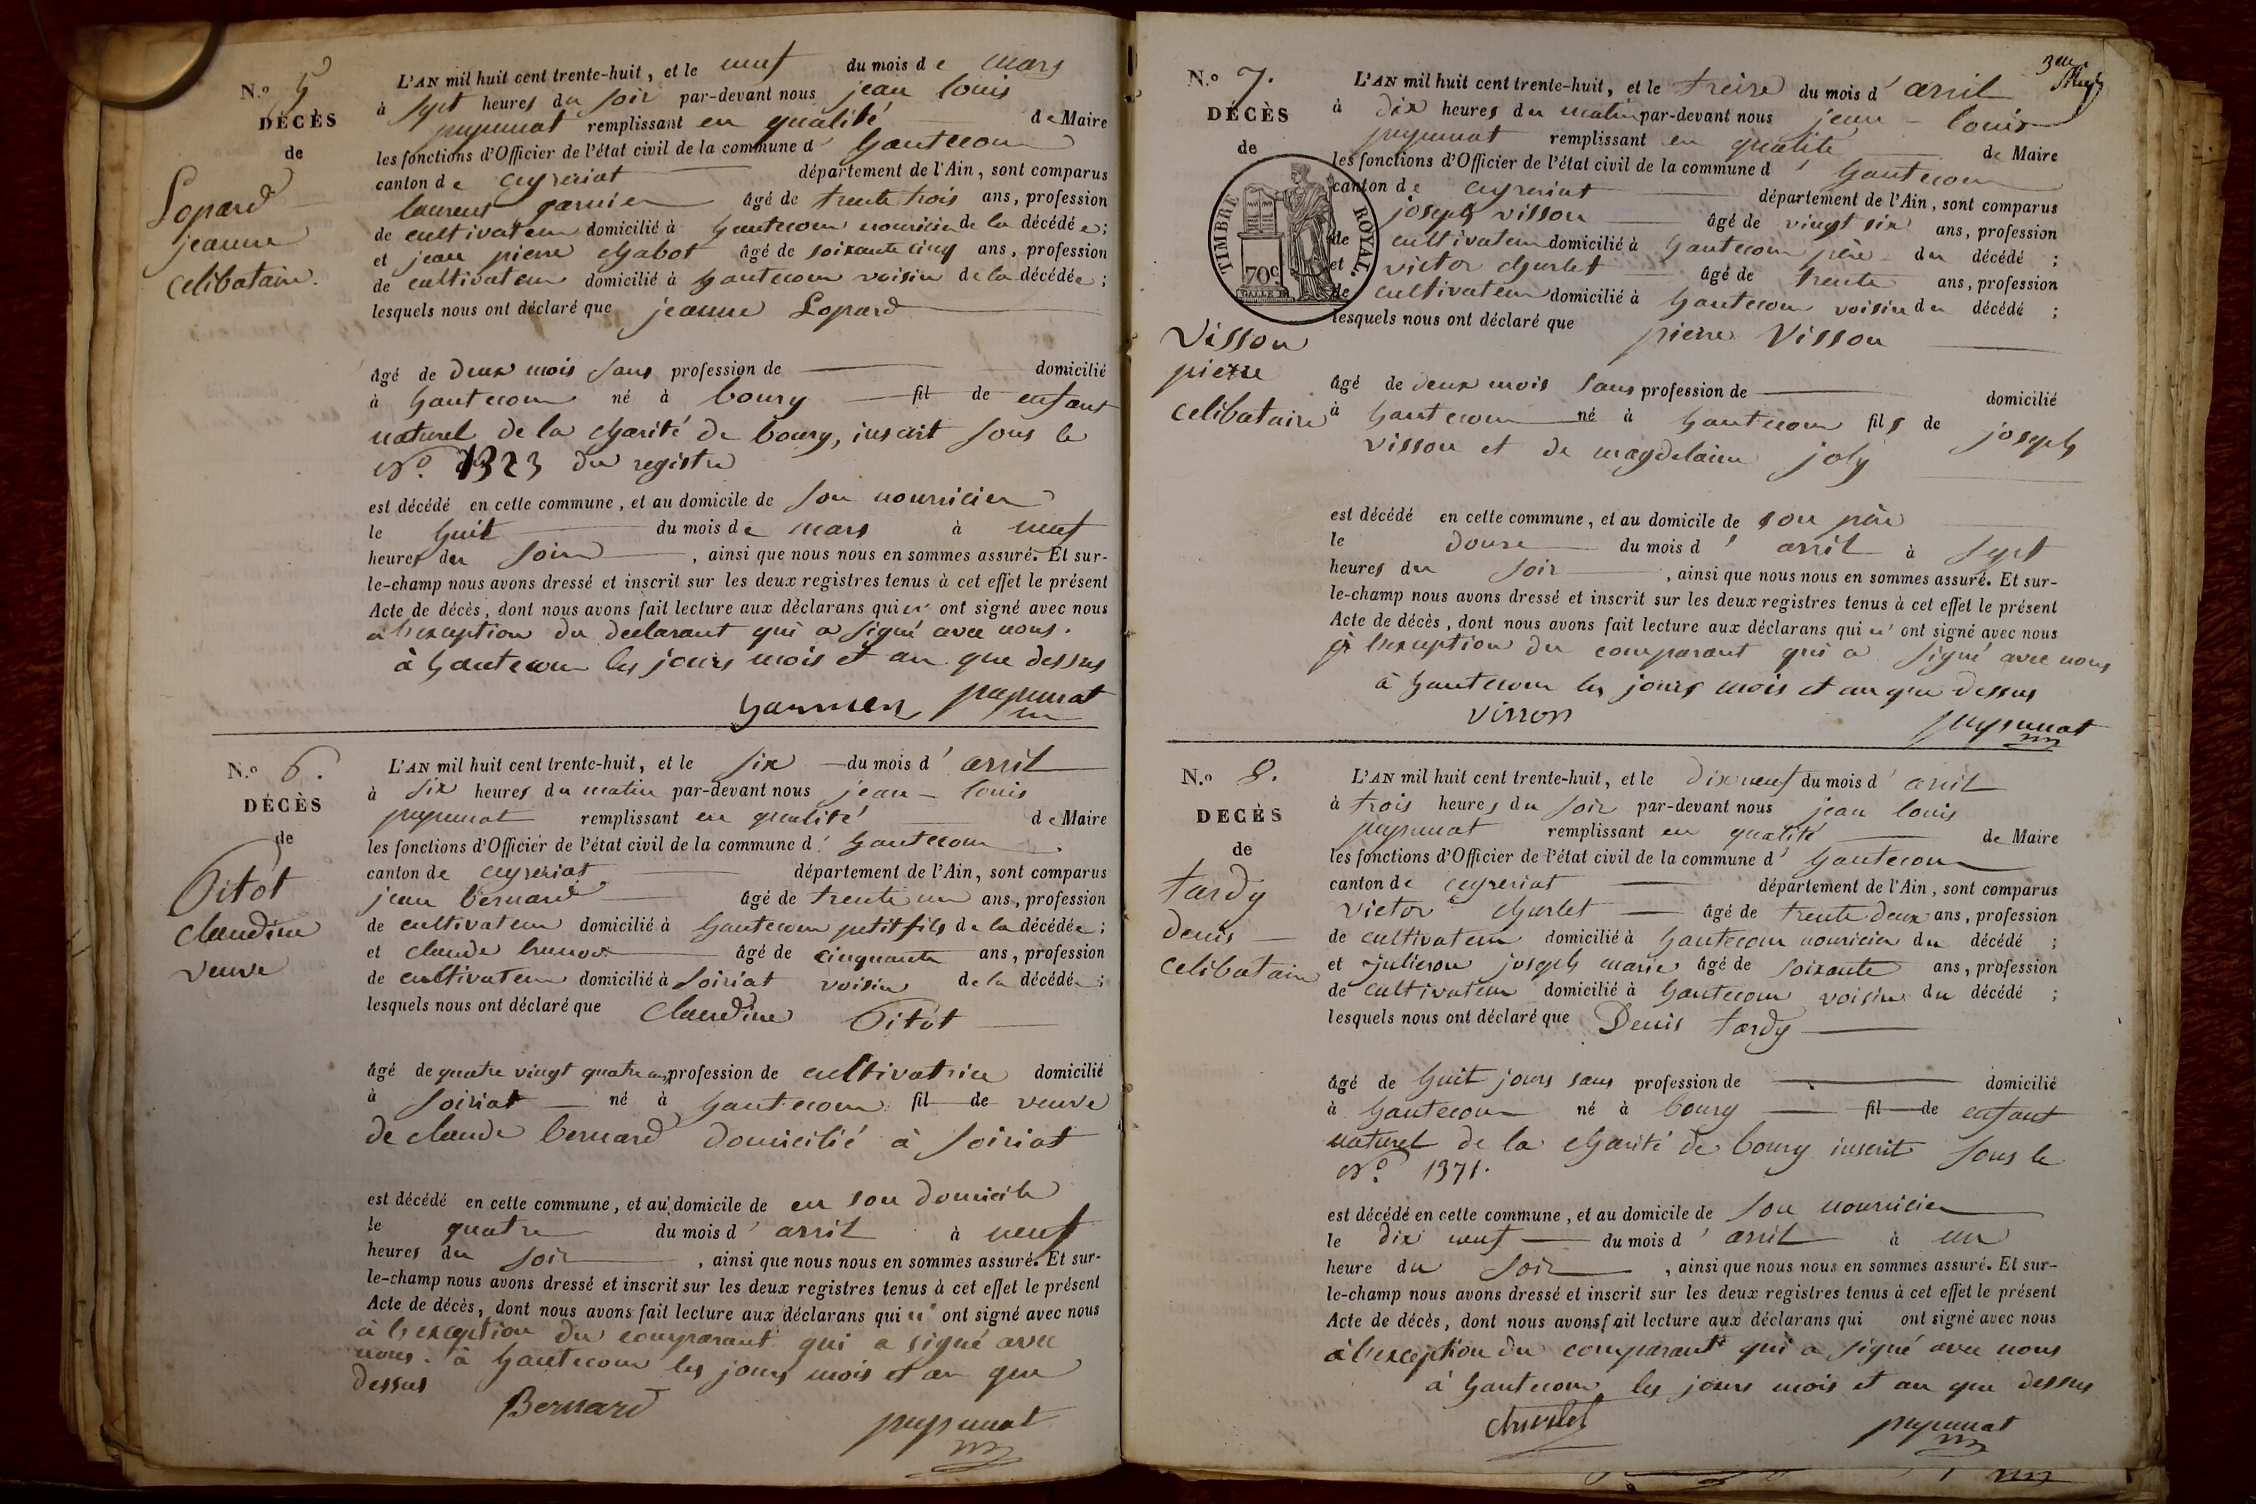 N.º 5
DÉCÈS
de
Lopard
jeanne
celibataire.
L'AN mil huit cent trente-huit, et le neuf du mois de mars
à sept heures du soir par-devant nous jean louis
puypunat remplissant en qualité de Maire
les fonctions d'Officier de l'état civil de la commune d' hautecour
canton de ceyzeriat département de l'Ain, sont comparus
laurent garnier âgé de trente trois ans, profession
de cultivateur domicilié à hautecour nourricier de la décédée;
et jean pierre chabot âgé de soixante cinq ans, profession
de cultivateur domicilié à hautecour voisin de la décédée;
lesquels nous ont déclaré que jeanne Lopard
âgé de deux mois sans profession de domicilié
à hautecour né à bourg fil de enfant
naturel de la charité de bourg, inscrit sous le
Nº 1323 du registre
est décédé en cette commune, et au domicile de son nourricier
le huit du mois de mars à neuf
heures du soir, ainsi que nous nous en sommes assuré. Et sur-
le-champ nous avons dressé et inscrit sur les deux registres tenus à cet effet le présent
Acte de décès, dont nous avons fait lecture aux déclarans qui n' ont signé avec nous
a l'exception du declarant qui a signé avec nous.
à hautecour les jours mois et an que dessus
garnier puypunat
N.º 6.
DÉCÈS
de
Pitôt
claudine
veuve
L'AN mil huit cent trente-huit, et le six du mois d' avril
à six heures du matin par-devant nous jean louis
puypunat remplissant en qualité de Maire
les fonctions d'Officier de l'état civil de la commune d' hautecour
canton de ceyzeriat département de l'Ain, sont comparus
jean bernard âgé de trente un ans, profession
de cultivateur domicilié à hautecour petit fils de la décédée;
et claude âgé de cinquante ans, profession
de cultivateur domicilié à Soiriat voisin de la décédée;
lesquels nous ont déclaré que claudine Pitôt
âgé de quatre vingt quatre ans profession de cultivatrice domicilié
à Soiriat né à hautecour fil de veuve
de claude bernard domicilié à Soiriat
est décédé en cette commune, et au domicile de en son domicile
le quatre du mois d' avril à neuf
heures du soir, ainsi que nous nous en sommes assuré. Et sur-
le-champ nous avons dressé et inscrit sur les deux registres tenus à cet effet le présent
Acte de décès, dont nous avons fait lecture aux déclarans qui n' ont signé avec nous
à l'exception du comparant qui a signé avec
nous. à hautecour les jours mois et an que
dessus
Bernard
puypunat
N.º 7.
DÉCÈS
de
TIMBRE ROYAL.
70c.
Visson
pierre
celibataire
L'AN mil huit cent trente-huit, et le treize du mois d' avril
à dix heures du matin par-devant nous jean louis
puypunat remplissant en qualité de Maire
les fonctions d'Officier de l'état civil de la commune d' hautecour
canton de ceyzeriat département de l'Ain, sont comparus
joseph visson âgé de vingt six ans, profession
de cultivateur domicilié à hautecour père du décédé;
et victor churlet âgé de trente ans, profession
de cultivateur domicilié à hautecour voisin du décédé;
lesquels nous ont déclaré que pierre Visson
âgé de deux mois sans profession de domicilié
à hautecour né à hautecour fils de joseph
visson et de magdelaine joly
est décédé en cette commune, et au domicile de son père
le douze du mois d' avril à sept
heures du soir, ainsi que nous nous en sommes assuré. Et sur-
le-champ nous avons dressé et inscrit sur les deux registres tenus à cet effet le présent
Acte de décès, dont nous avons fait lecture aux déclarans qui n' ont signé avec nous
à l'exception du comparant qui a signé avec nous
à hautecour les jours mois et an que dessus
visson
puypunat
N.º 8.
DÉCÈS
de
tardy
denis
celibataire
L'AN mil huit cent trente-huit, et le dix neuf du mois d' avril
à trois heures du soir par-devant nous jean louis
puypunat remplissant en qualité de Maire
les fonctions d'Officier de l'état civil de la commune d' hautecour
canton de ceyzeriat département de l'Ain, sont comparus
victor churlet âgé de trente deux ans, profession
de cultivateur domicilié à hautecour nouricier du décédé;
et julieron joseph marie âgé de soixante ans, profession
de cultivateur domicilié à hautecour voisin du décédé;
lesquels nous ont déclaré que Denis tardy
âgé de huit jours sans profession de domicilié
à hautecour né à bourg fil de enfant
naturel de la charité de bourg inscrit sous le
Nº 1371.
est décédé en cette commune, et au domicile de son nourricier
le dix neuf du mois d' avril à un
heure du soir, ainsi que nous nous en sommes assuré. Et sur-
le-champ nous avons dressé et inscrit sur les deux registres tenus à cet effet le présent
Acte de décès, dont nous avons fait lecture aux déclarans qui ont signé avec nous
à l'exception du comparant qui a signé avec nous
à hautecour les jours mois et an que dessus
churlet
puypunat